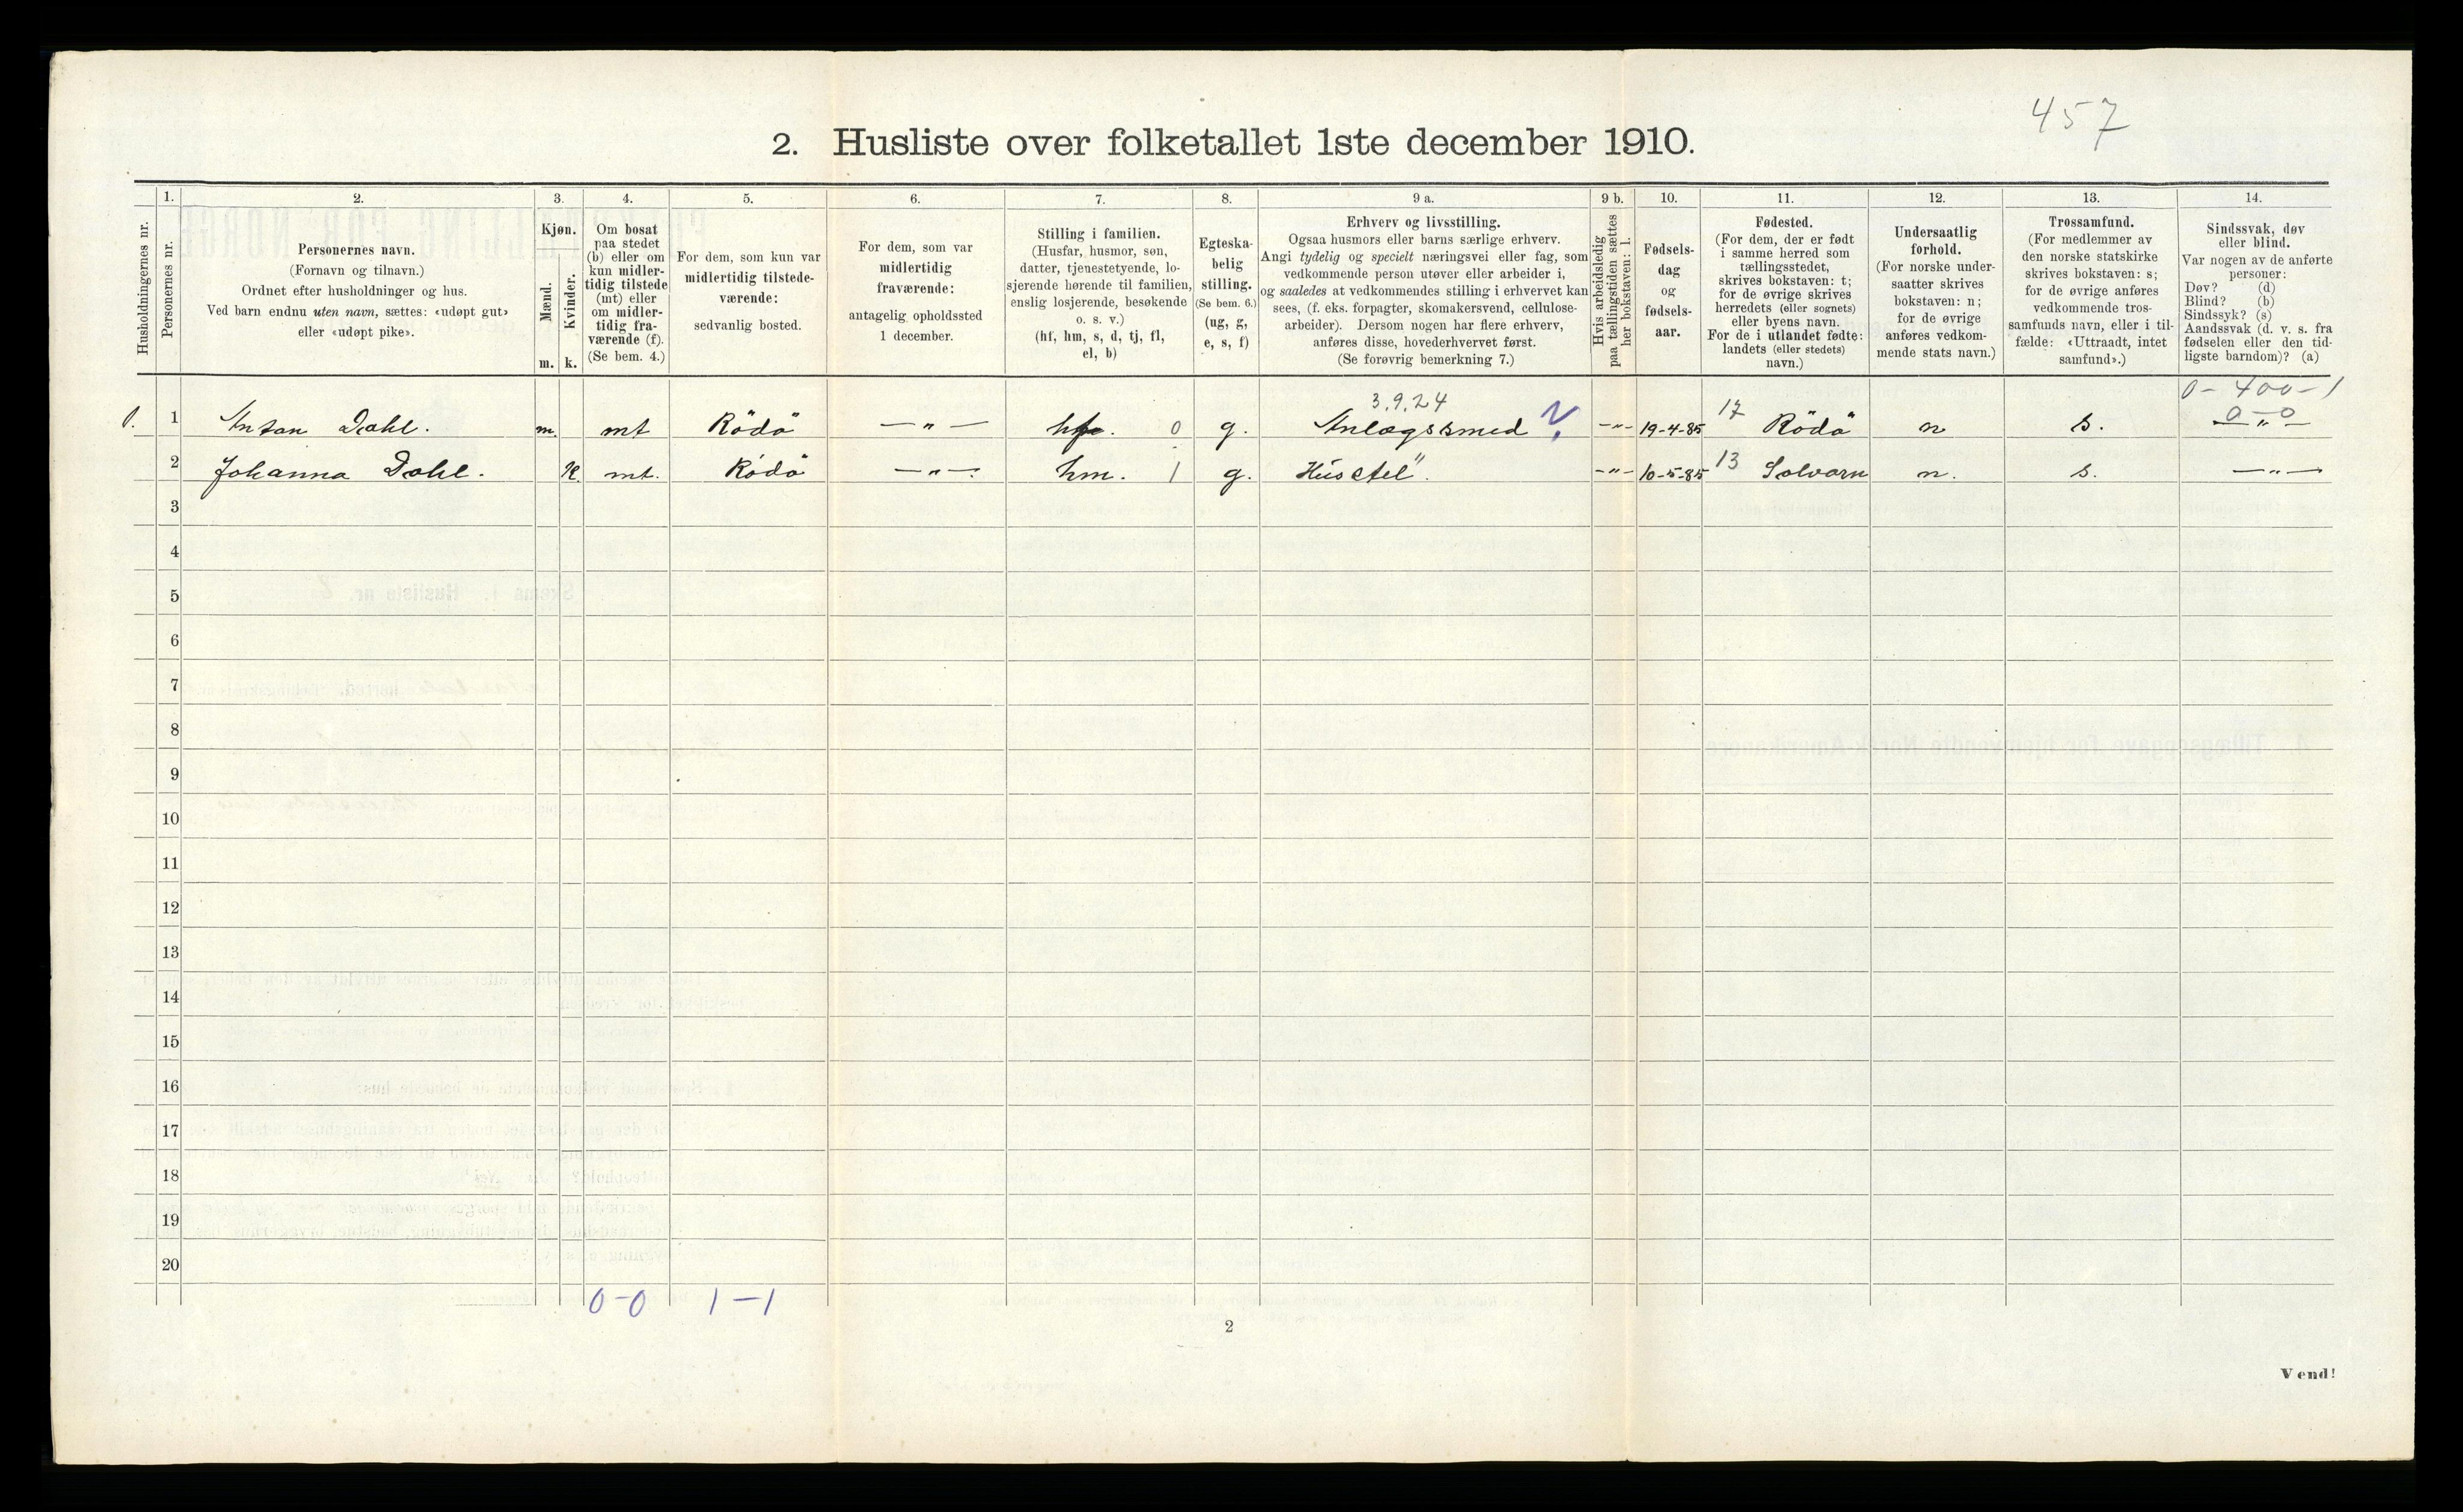 457
2. Husliste over folketallet 1ste december 1910.
Husholdningernes nr.
1.
Personernes nr.
2.
Personernes navn.
(Fornavn og tilnavn.)
Ordnet efter husholdninger og hus.
Ved barn endnu uten navn, sættes: «udøpt gut»
eller «udøpt pike».
3.
Kjøn.
Mænd.
Kvinder.
m. k.
4.
Om bosat
paa stedet
(b) eller om
kun midler-
tidig tilstede
(mt) eller
om midler-
tidig fra-
værende (f).
(Se bem. 4.)
5.
For dem, som kun var
midlertidig tilstede-
værende:
sedvanlig bosted.
6.
For dem, som var
midlertidig
fraværende:
antagelig opholdssted
1 december.
7.
Stilling i familien.
(Husfar, husmor, søn,
datter, tjenestetyende, lo-
sjerende hørende til familien,
enslig losjerende, besøkende
o. s. v.)
(hf, hm, s, d, tj, fl,
el, b)
8.
Egteska-
belig
stilling.
(Se bem. 6.)
(ug, g,
e, s, f)
9 a.
Erhverv og livsstilling.
Ogsaa husmors eller barns særlige erhverv.
Angi tydelig og specielt næringsvei eller fag, som
vedkommende person utøver eller arbeider i,
og saaledes at vedkommendes stilling i erhvervet kan
sees, (f. eks. forpagter, skomakersvend, cellulose-
arbeider). Dersom nogen har flere erhverv,
anføres disse, hovederhvervet først.
(Se forøvrig bemerkning 7.)
9 b.
Hvis arbeidsledig
paa tællingstiden sættes
her bokstaven: l.
10.
Fødsels-
dag
og
fødsels-
aar.
11.
Fødested.
(For dem, der er født
i samme herred som
tællingsstedet,
skrives bokstaven: t;
for de øvrige skrives
herredets (eller sognets)
eller byens navn.
For de i utlandet fødte:
landets (eller stedets)
navn.)
12.
Undersaatlig
forhold.
(For norske under-
saatter skrives
bokstaven: n;
for de øvrige
anføres vedkom-
mende stats navn.)
13.
Trossamfund.
(For medlemmer av
den norske statskirke
skrives bokstaven: s;
for de øvrige anføres
vedkommende tros-
samfunds navn, eller i til-
fælde: «Uttraadt, intet
samfund».)
14.
Sindssvak, døv
eller blind.
Var nogen av de anførte
personer:
Døv? (d)
Blind? (b)
Sindssyk? (s)
Aandssvak (d. v. s. fra
fødselen eller den tid-
ligste barndom)? (a)
3.9.24 0-400-1
0-0
1. 1 Anton Dahl. m. mt Rödö —"— hf. 0 g. Anlægssmed -"- 19-4-85 17 Rödö n s. —"—
2 Johanna Dahl. K. mt. Rödö —"—. hm. 1 g. Husstel". -"- 10-5-85 13 Solvorn n. s. —"—
3
4
5
6
7
8
9
10
11
12
13
14
15
16
17
18
19
20
0-0 1-1
2
Vend!